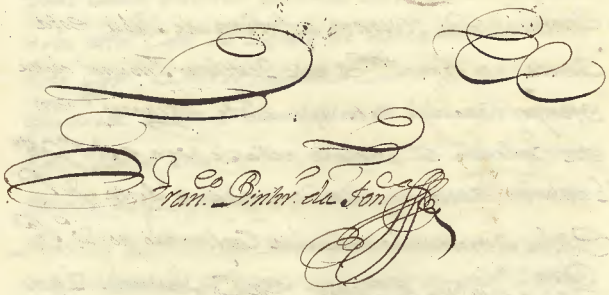 Fran.co Pinhr.o da Fon.ca